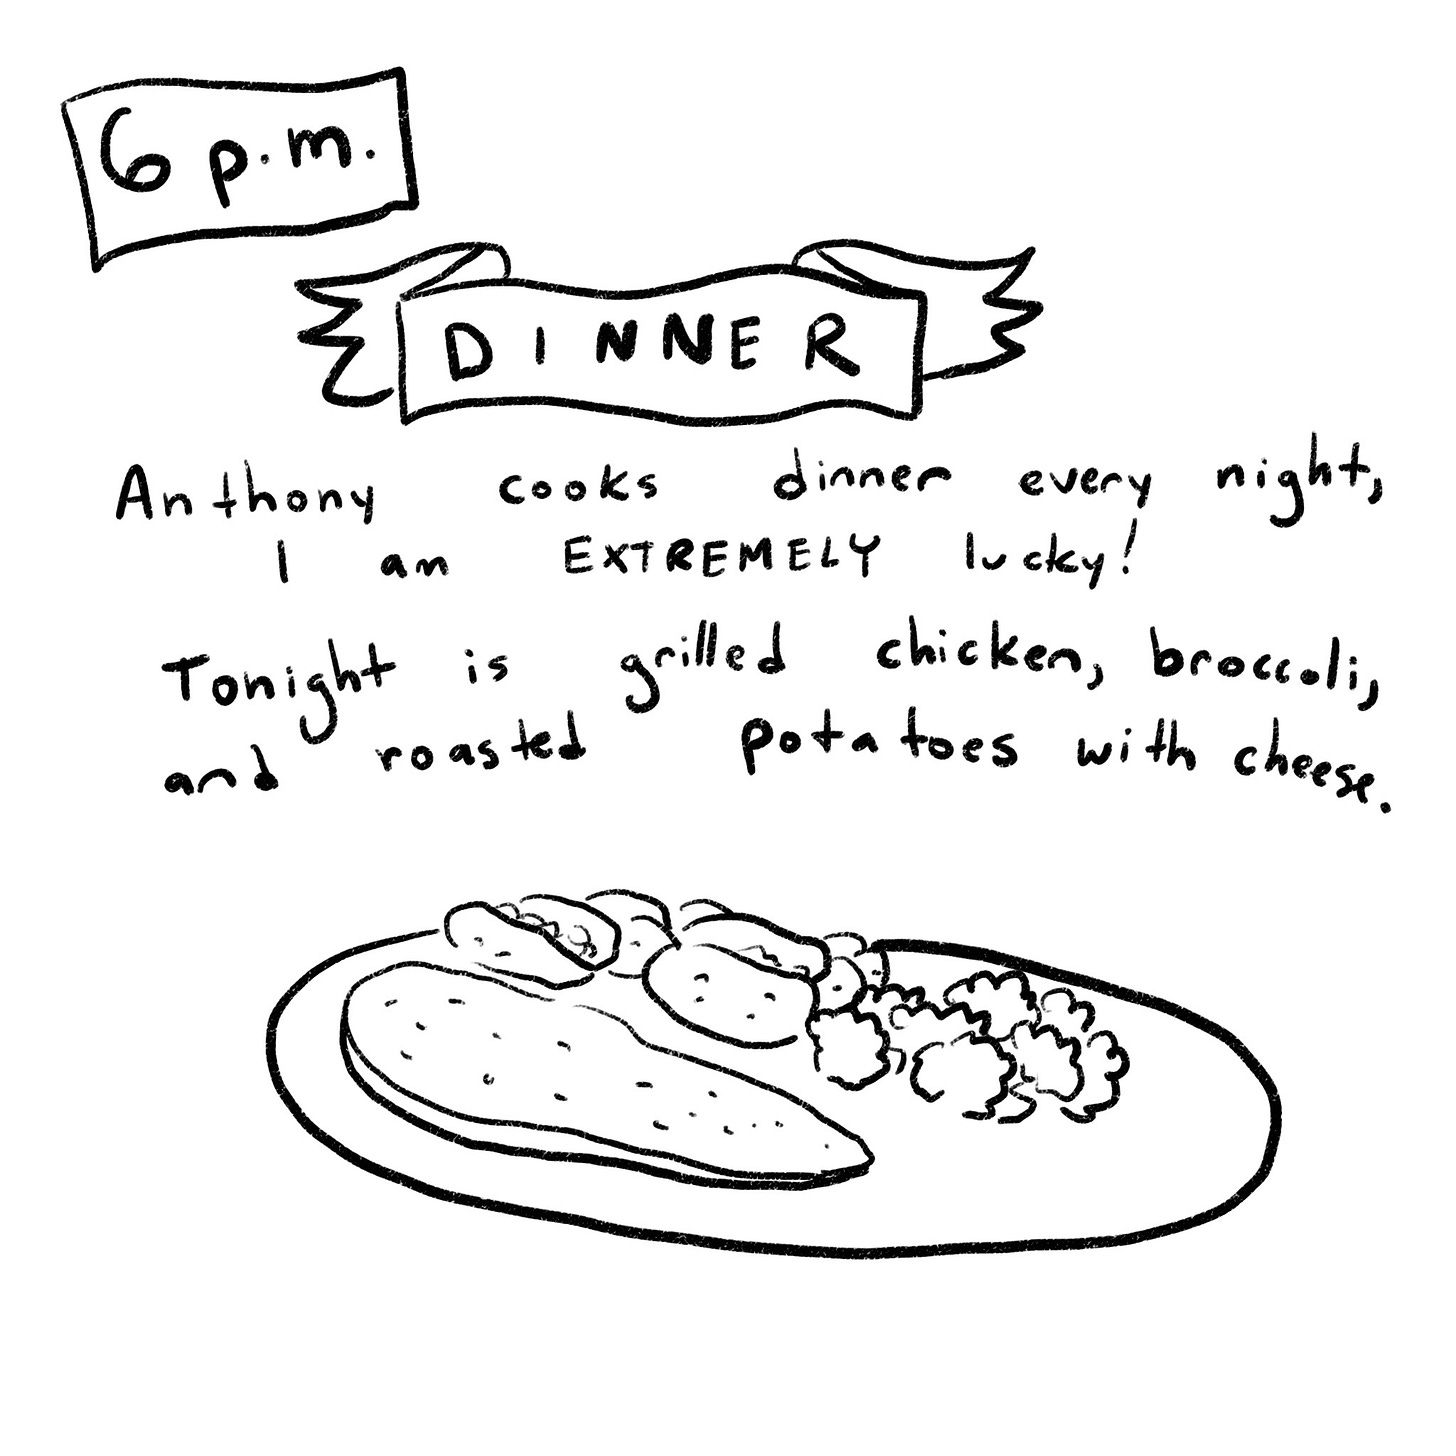 6 p.m.
DINNER
Anthony cooks dinner every night,
I am EXTREMELY lucky!
Tonight is grilled chicken, broccoli,
and roasted potatoes with cheese.